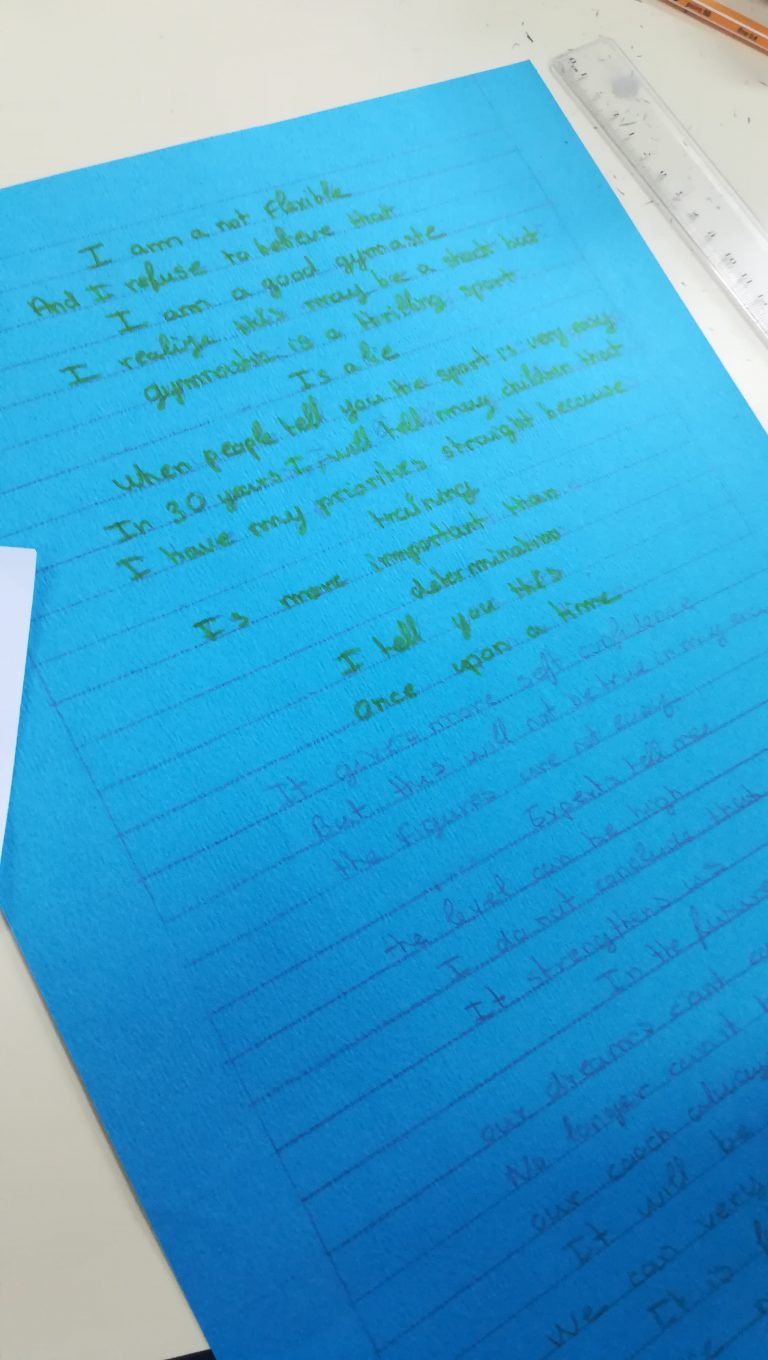 I am a not flexible
And I refuse to believe that
I am a good gymnaste
I realize this may be a shock but
gymnastic is a thrilling sport
Is a lie
When people tell you the sport is very easy
In 30 years I will tell many children that
I have my priorities straight because
training
Is more important than
determination
I tell you this
once upon a time
It gives more self confidence
But this will not be true in my
the figures are not easy
Experts tell me
the level can be high
I do not conclude that
It strengthens us
In the future
our dreams can't
No longer can't
our coach always
It will be
We can very
It is